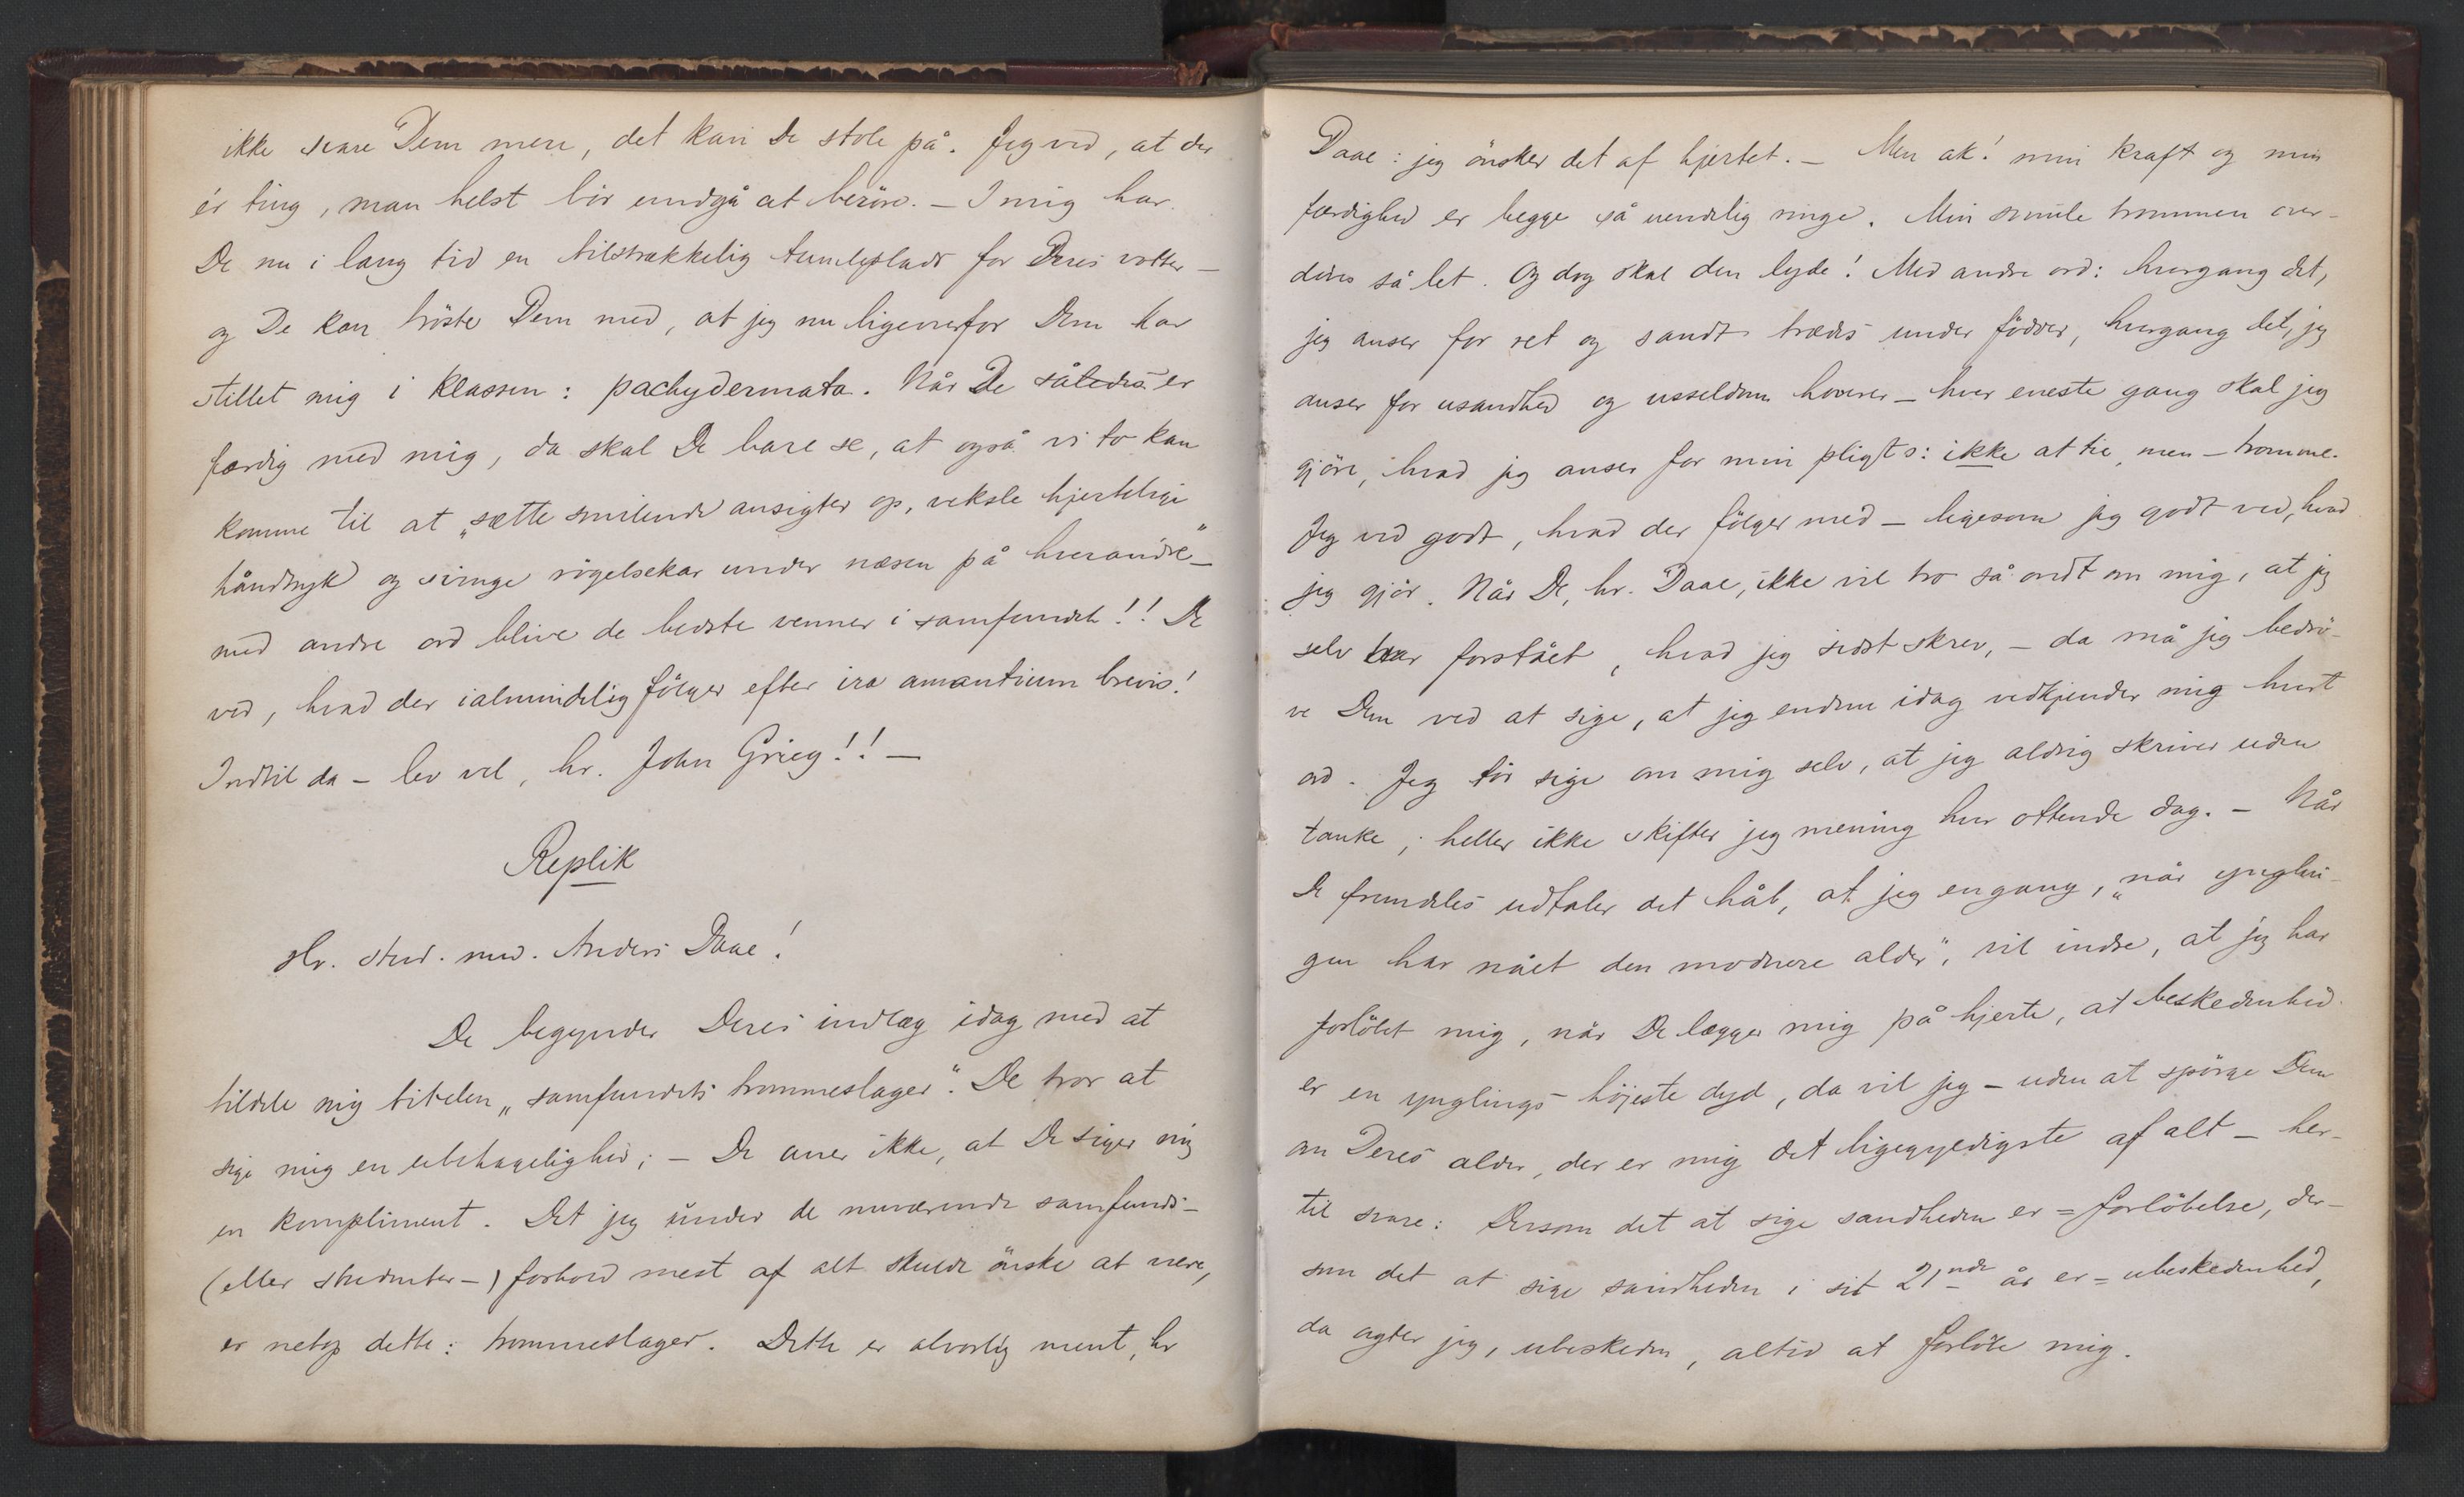 ikke svare Dem mere, det kan De stole på. Jeg ved, at der
ér ting, man helst bör undgå at beröre. – I mig har
De nu i lang tid en tilstrækkelig tumleplads for Deres rotter –
og De kan tröste Dem med, at jeg nu ligeoverfor Dem har
stillet mig i Klassen: pachydermata. Når De således er
færdig med mig, da skal De bare se, at også vi to kan
komme til at „sætte smilende ansigter op, veksle hjertelige
håndtryk og svinge rögelsekar under næsen på hverandre" –
med andre ord blive de bedste venner i samfundet!! De
ved, hvad der ialmindelig fölger efter ira amantium brevis!
Indtil da – lev vel, hr. John Grieg!! –
Replik
Hr. stud. med. Anders Daae!
De begynder Deres indlæg idag med at
tildele mig titelen „samfundets trommeslager". De tror at
sige mig en ubehagelighed; – De aner ikke, at De siger mig
en kompliment. Det jeg under de nuværende samfunds-
(eller studenter-) forhold mest af alt skulde önske at være,
er netop dette: trommeslager. Dette er alvorlig ment, hr
Daae: jeg önsker det af hjertet. – Men ak! min kraft og min
færdighed er begge så uendelig ringe. Min smule trommen over-
döves så let. Og dog skal den lyde! Med andre ord: hvergang det,
jeg anser for ret og sandt trædes under födder, hvergang det, jeg
anser for usandhed og usseldom hoverer – hver eneste gang skal jeg
gjöre, hvad jeg anser for min pligt ɔ: ikke at tie, men – tromme.
Jeg ved godt, hvad der fölger med – ligesom jeg godt ved, hvad
jeg gjör. Når De, hr. Daae, ikke vil tro så ondt om mig, at jeg
selv har forstået, hvad jeg sidst skrev, – da må jeg bedrö-
ve Dem ved at sige, at jeg endnu idag vedkjender mig hvert
ord. Jeg tör sige om mig selv, at jeg aldrig skriver uden
tanke; heller ikke skifter jeg mening hver ottende dag. – Når
De fremdeles udtaler det håb, at jeg engang, „når ynglin-
gen har nået den modnere alder", vil indse, at jeg har
forlöbet mig, når De lægger mig på hjerte, at beskedenhed
er en ynglings höjeste dyd, da vil jeg – uden at spörge Dem
om Deres alder, der er mig det ligegyldigste af alt – her-
til svare: Dersom det at sige sandheden er = forlöbelse, der-
som det at sige sandheden i sit 21nde år er = ubeskedenhed,
da agter jeg, ubeskeden, altid at forlöbe mig.